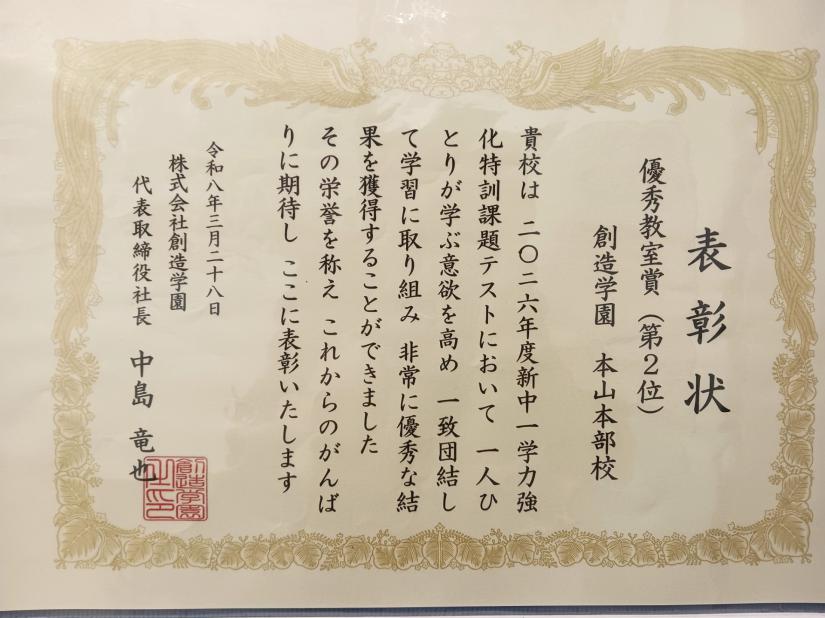 表彰状
優秀教室賞（第２位）
創造学園　本山本部校
貴校は　二〇二六年度新中一学力強
化特訓課題テストにおいて　一人ひ
とりが学ぶ意欲を高め　一致団結し
て学習に取り組み　非常に優秀な結
果を獲得することができました
その栄誉を称え　これからのがんば
りに期待し　ここに表彰いたします
令和八年三月二十八日
株式会社創造学園
代表取締役社長　中島　竜也
創造学園
之印